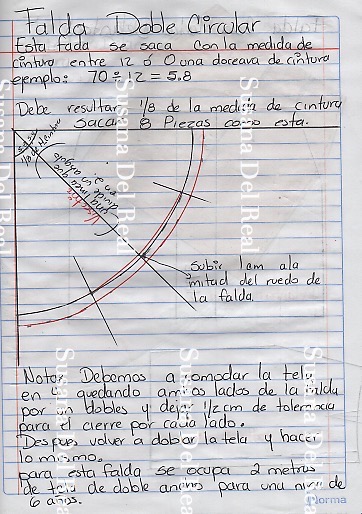 Falda Doble Circular
Esta fada se saca con la medida de
cintura entre 12 ó O una doceava de cintura
ejemplo: 70 ÷ 12 = 5.8
Debe resultar 1/8 de la medida de cintura
Sacar 8 Piezas como esta.
Subir 1cm a la
mitad del ruedo de
la falda.
Nota: Debemos acomodar la tela
en 4 quedando ambos lados de la falda
por dobles y dejar 1/2 cm de tolerancia
para el cierre por cada lado.
Despues volver a doblar la tela y hacer
lo mismo.
para esta falda se ocupa 2 metros
de tela de doble ancho para una niña de
6 años.
Norma
Susana Del Real
Susana Del Real
Susana Del Real
Susana Del Real